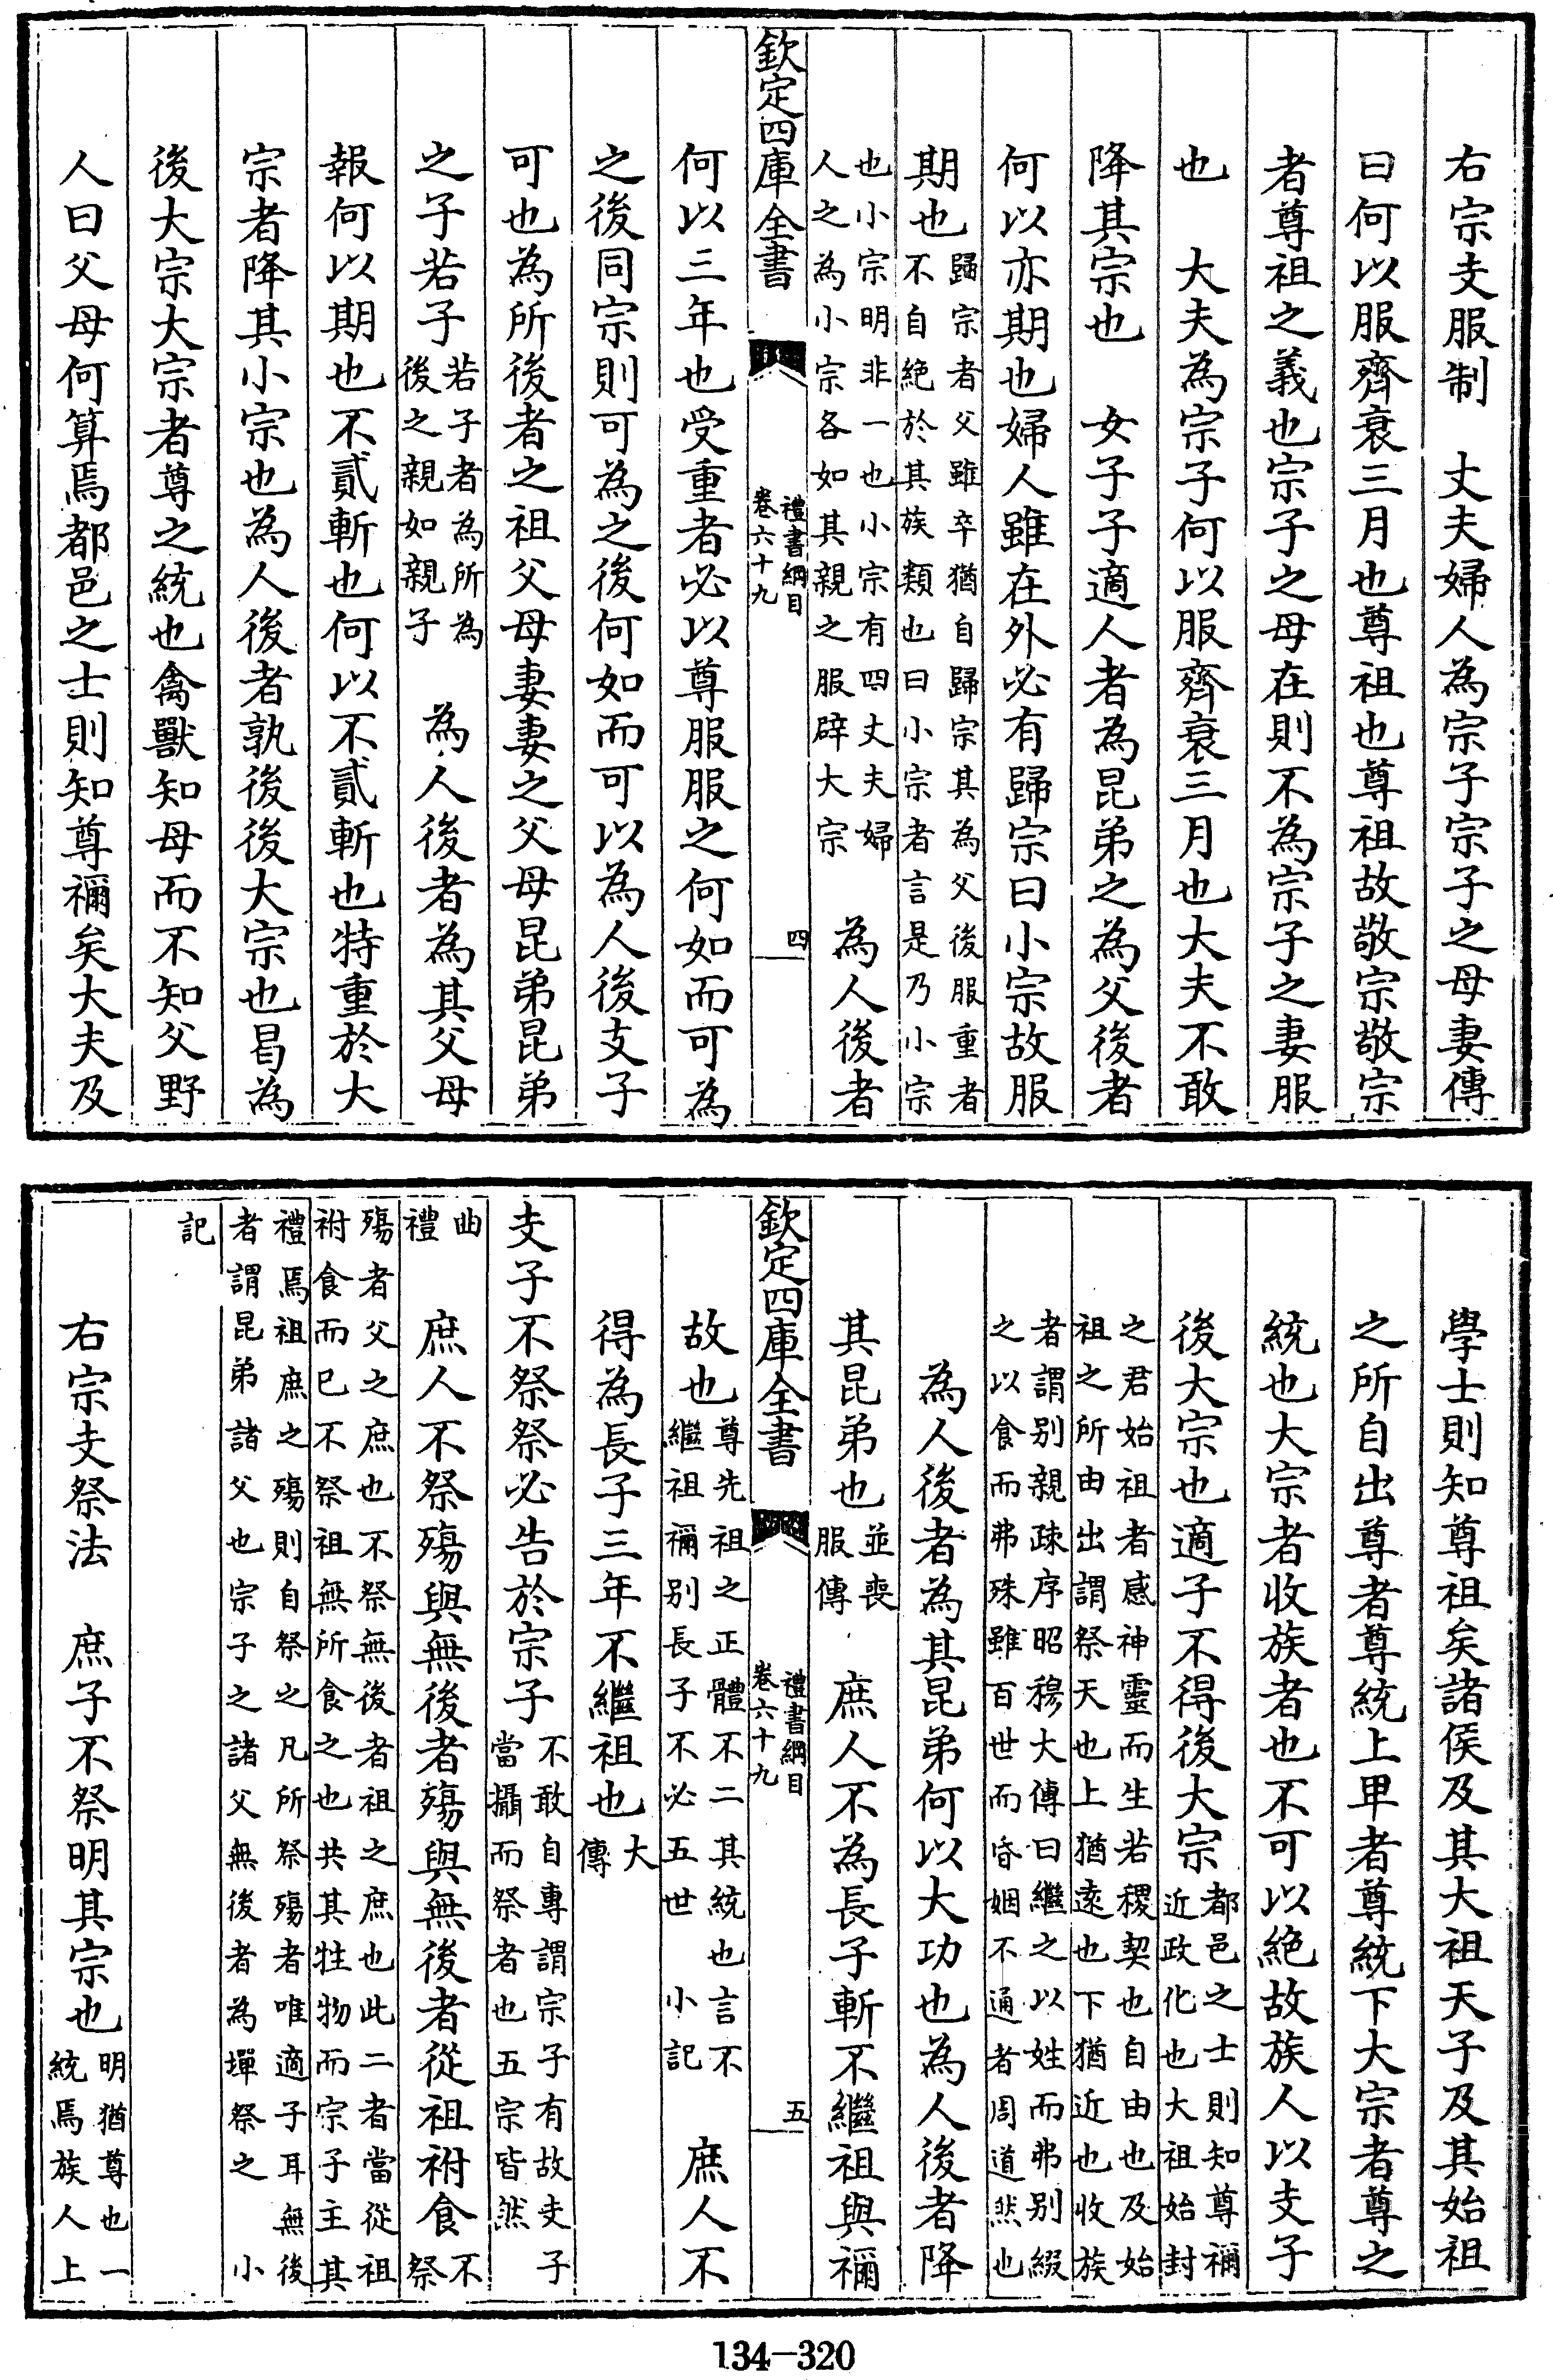 右宗支服制　丈夫婦人為宗子宗子之母妻傳
曰何以服齊衰三月也尊祖也尊祖故敬宗敬宗
者尊祖之義也宗子之母在則不為宗子之妻服
也　大夫為宗子何以服齊衰三月也大夫不敢
降其宗也　女子子適人者為昆弟之為父後者
何以亦期也婦人雖在外必有歸宗曰小宗故服
期也
歸宗者父雖卒猶自歸宗其為父後服重者
不自絶於其族類也曰小宗者言是乃小宗
也小宗明非一也小宗有四丈夫婦
人之為小宗各如其親之服辟大宗
為人後者
欽定四庫全書
禮書綱目
卷六十九
四
何以三年也受重者必以尊服服之何如而可為
之後同宗則可為之後何如而可以為人後支子
可也為所後者之祖父母妻妻之父母昆弟昆弟
之子若子
若子者為所為
後之親如親子
為人後者為其父母
報何以期也不貳斬也何以不貳斬也特重於大
宗者降其小宗也為人後者孰後後大宗也曷為
後大宗大宗者尊之統也禽獸知母而不知父野
人曰父母何算焉都邑之士則知尊禰矣大夫及
學士則知尊祖矣諸侯及其大祖天子及其始祖
之所自出尊者尊統上卑者尊統下大宗者尊之
統也大宗者收族者也不可以絶故族人以支子
後大宗也適子不得後大宗
都邑之士則知尊禰
近政化也大祖始封
之君始祖者感神靈而生若稷契也自由也及始
祖之所由出謂祭天也上猶遠也下猶近也收族
者謂别親疎序昭穆大傳曰繼之以姓而弗别綴
之以食而弗殊雖百世而昏姻不通者周道然也
為人後者為其昆弟何以大功也為人後者降
其昆弟也
並喪
服傳
庶人不為長子斬不繼祖與禰
欽定四庫全書
禮書綱目
卷六十九
五
故也
尊先祖之正體不二其統也言不
繼祖禰别長子不必五世　小記
庶人不
得為長子三年不繼祖也
大
傳
支子不祭祭必告於宗子
不敢自專謂宗子有故支子
當攝而祭者也五宗皆然
曲
禮
庶人不祭殤與無後者殤與無後者從祖祔食
不
祭
殤者父之庶也不祭無後者祖之庶也此二者當從祖
祔食而已不祭祖無所食之也共其牲物而宗子主其
禮焉祖庶之殤則自祭之凡所祭殤者唯適子耳無後
者謂昆弟諸父也宗子之諸父無後者為墠祭之　小
記
右宗支祭法　庶子不祭明其宗也
明猶尊也一
統焉族人上
134-320